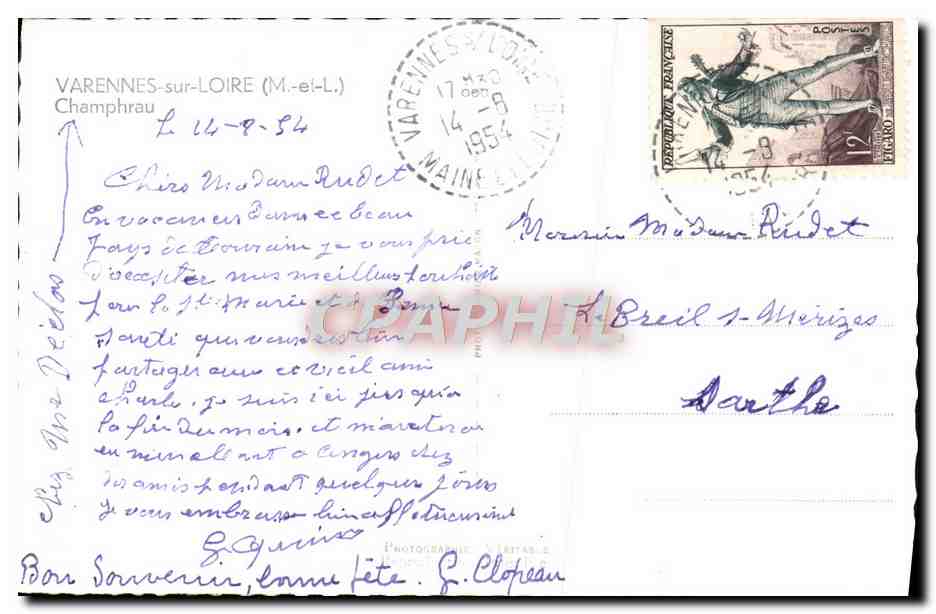 VARENNES-sur-LOIRE (M.-et-L.)
Champhrau
Le 14-9-54
Chère Madame Rudet
En vacances dans ce beau
Pays de Touraine je vous prie
d'accepter mes meilleurs souhaits
pour la Ste Marie et la Bonne
Santé que vous
partager avec ce vieil ami
Charles, je suis ici jusqu'à
la fin du mois, et
en m'en allant à Angers chez
des amis pendant quelques jours
Je vous embrasse bien affectueusement
Bon Souvenir, bonne fête. G. Clopeau
Chez Mme
PHOTOGRAPHIE VÉRITABLE
VARENNES S/ LOIRE
17 H30
14 -9
1954
MAINE ET LOIRE
REPUBLIQUE FRANÇAISE
POSTES
12F
FIGARO
14 -9
1954
Monsieur Madame Rudet
Le Breil s-Mérizes
Sarthe
CPAPHIL